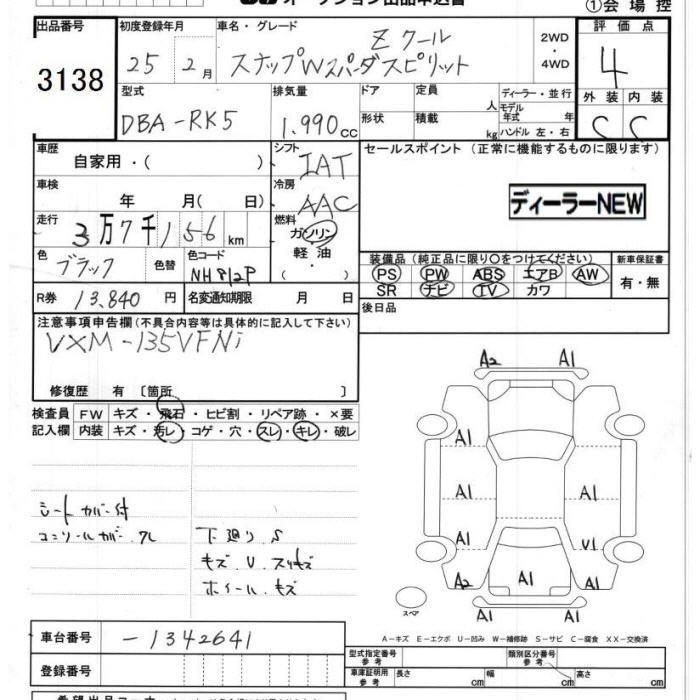 オークション出品申込書
①会場控
出品番号 3138
初度登録年月 25 2月
車名・グレード Zクール
スナップWスパーダスピリット
2WD ・ 4WD
評価点 4
外装 C 内装 C
型式 DBA-RK5
排気量 1.990cc
ドア 形状
定員 人
積載 kg
ディーラー・並行
モデル年式 年
ハンドル 左・右
車歴 自家用・( )
シフト IAT
車検 年 月( 日)
冷房 AAC
走行 3万7千156km
燃料 ガソリン・軽油・( )
色 ブラック 色替
色コード NH812P
R券 13,840円
名変通知期限 月 日
セールスポイント(正常に機能するものに限ります)
ディーラーNEW
装備品(純正品に限り○をつけてください)
PS PW ABS エアB AW
SR ナビ TV カワ
新車保証書 有・無
後日品
注意事項申告欄(不具合内容等は具体的に記入して下さい)
VXM-135VFNi
修復歴 有〔箇所 〕
検査員 FW キズ・飛石・ヒビ割・リペア跡・×要
記入欄 内装 キズ・汚レ・コゲ・穴・スレ・キレ・破レ
シートカバー付
コンソールカバークレ
下廻りS
キズ U スリキズ
ホイールキズ
A2 A1
A1
A1 A1
A1 U1
A2 A1 A1
A1
スペア
A-キズ E-エクボ U-凹み W-補修跡 S-サビ C-腐食 XX-交換済
車台番号 -1342641
登録番号
型式指定番号 参考
類別区分番号 参考
車庫証明用 参考 長さ cm 幅 cm 高さ cm